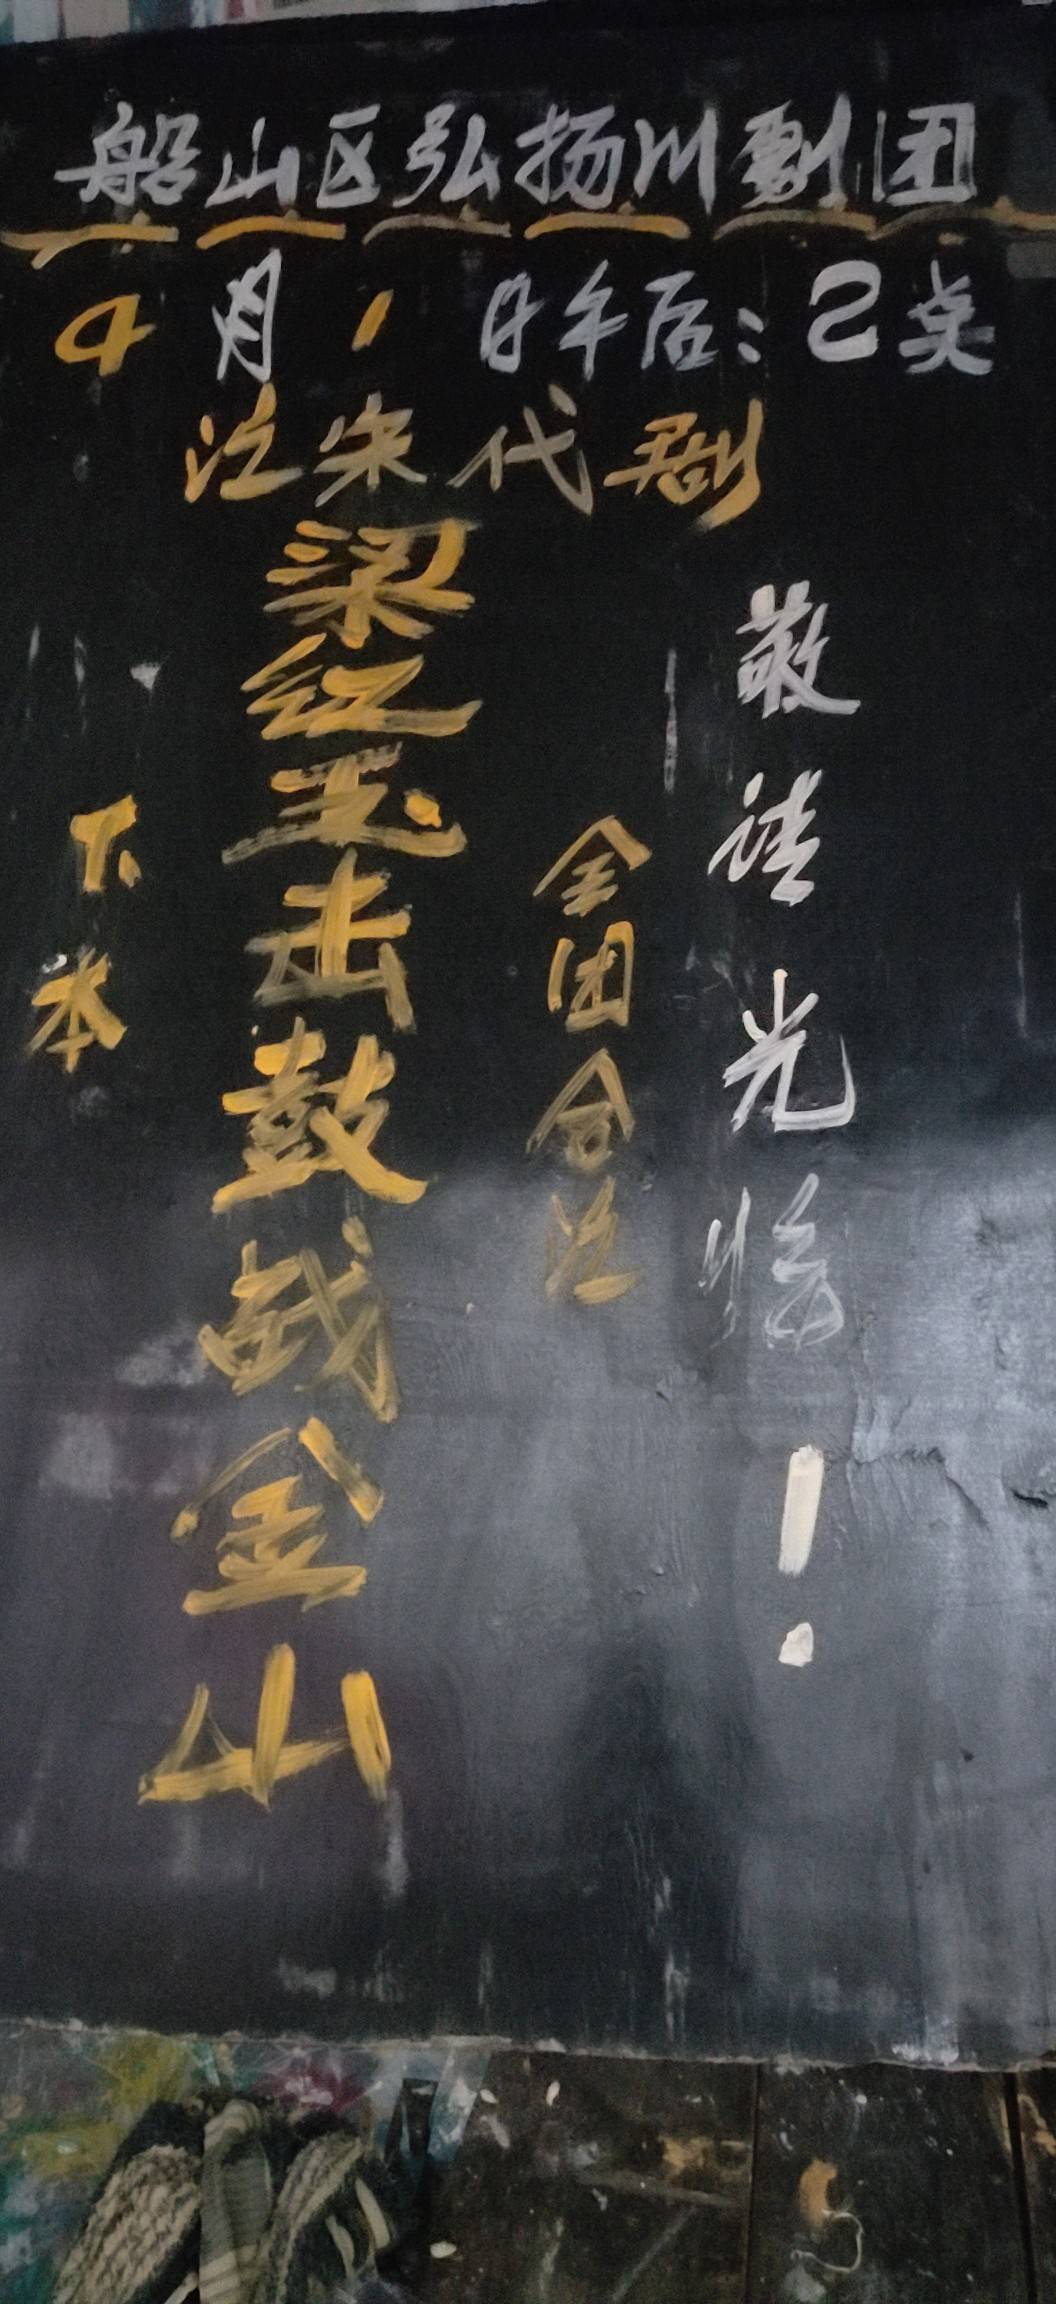 船山区弘扬川剧团
4月1日午后:2点
演宋代剧
下本
梁红玉击鼓战金山
全团合演
敬请光临!